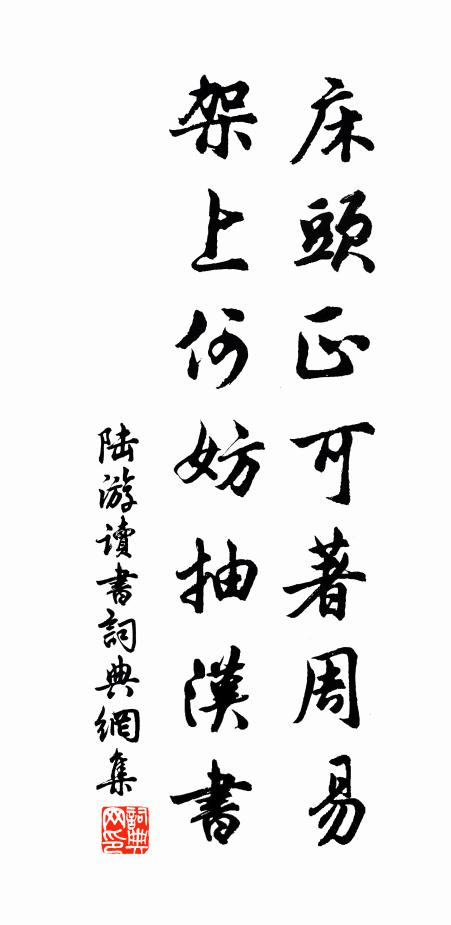 床頭正可著周易
架上何妨抽漢書
陆游讀書詞典網集
詞典网印